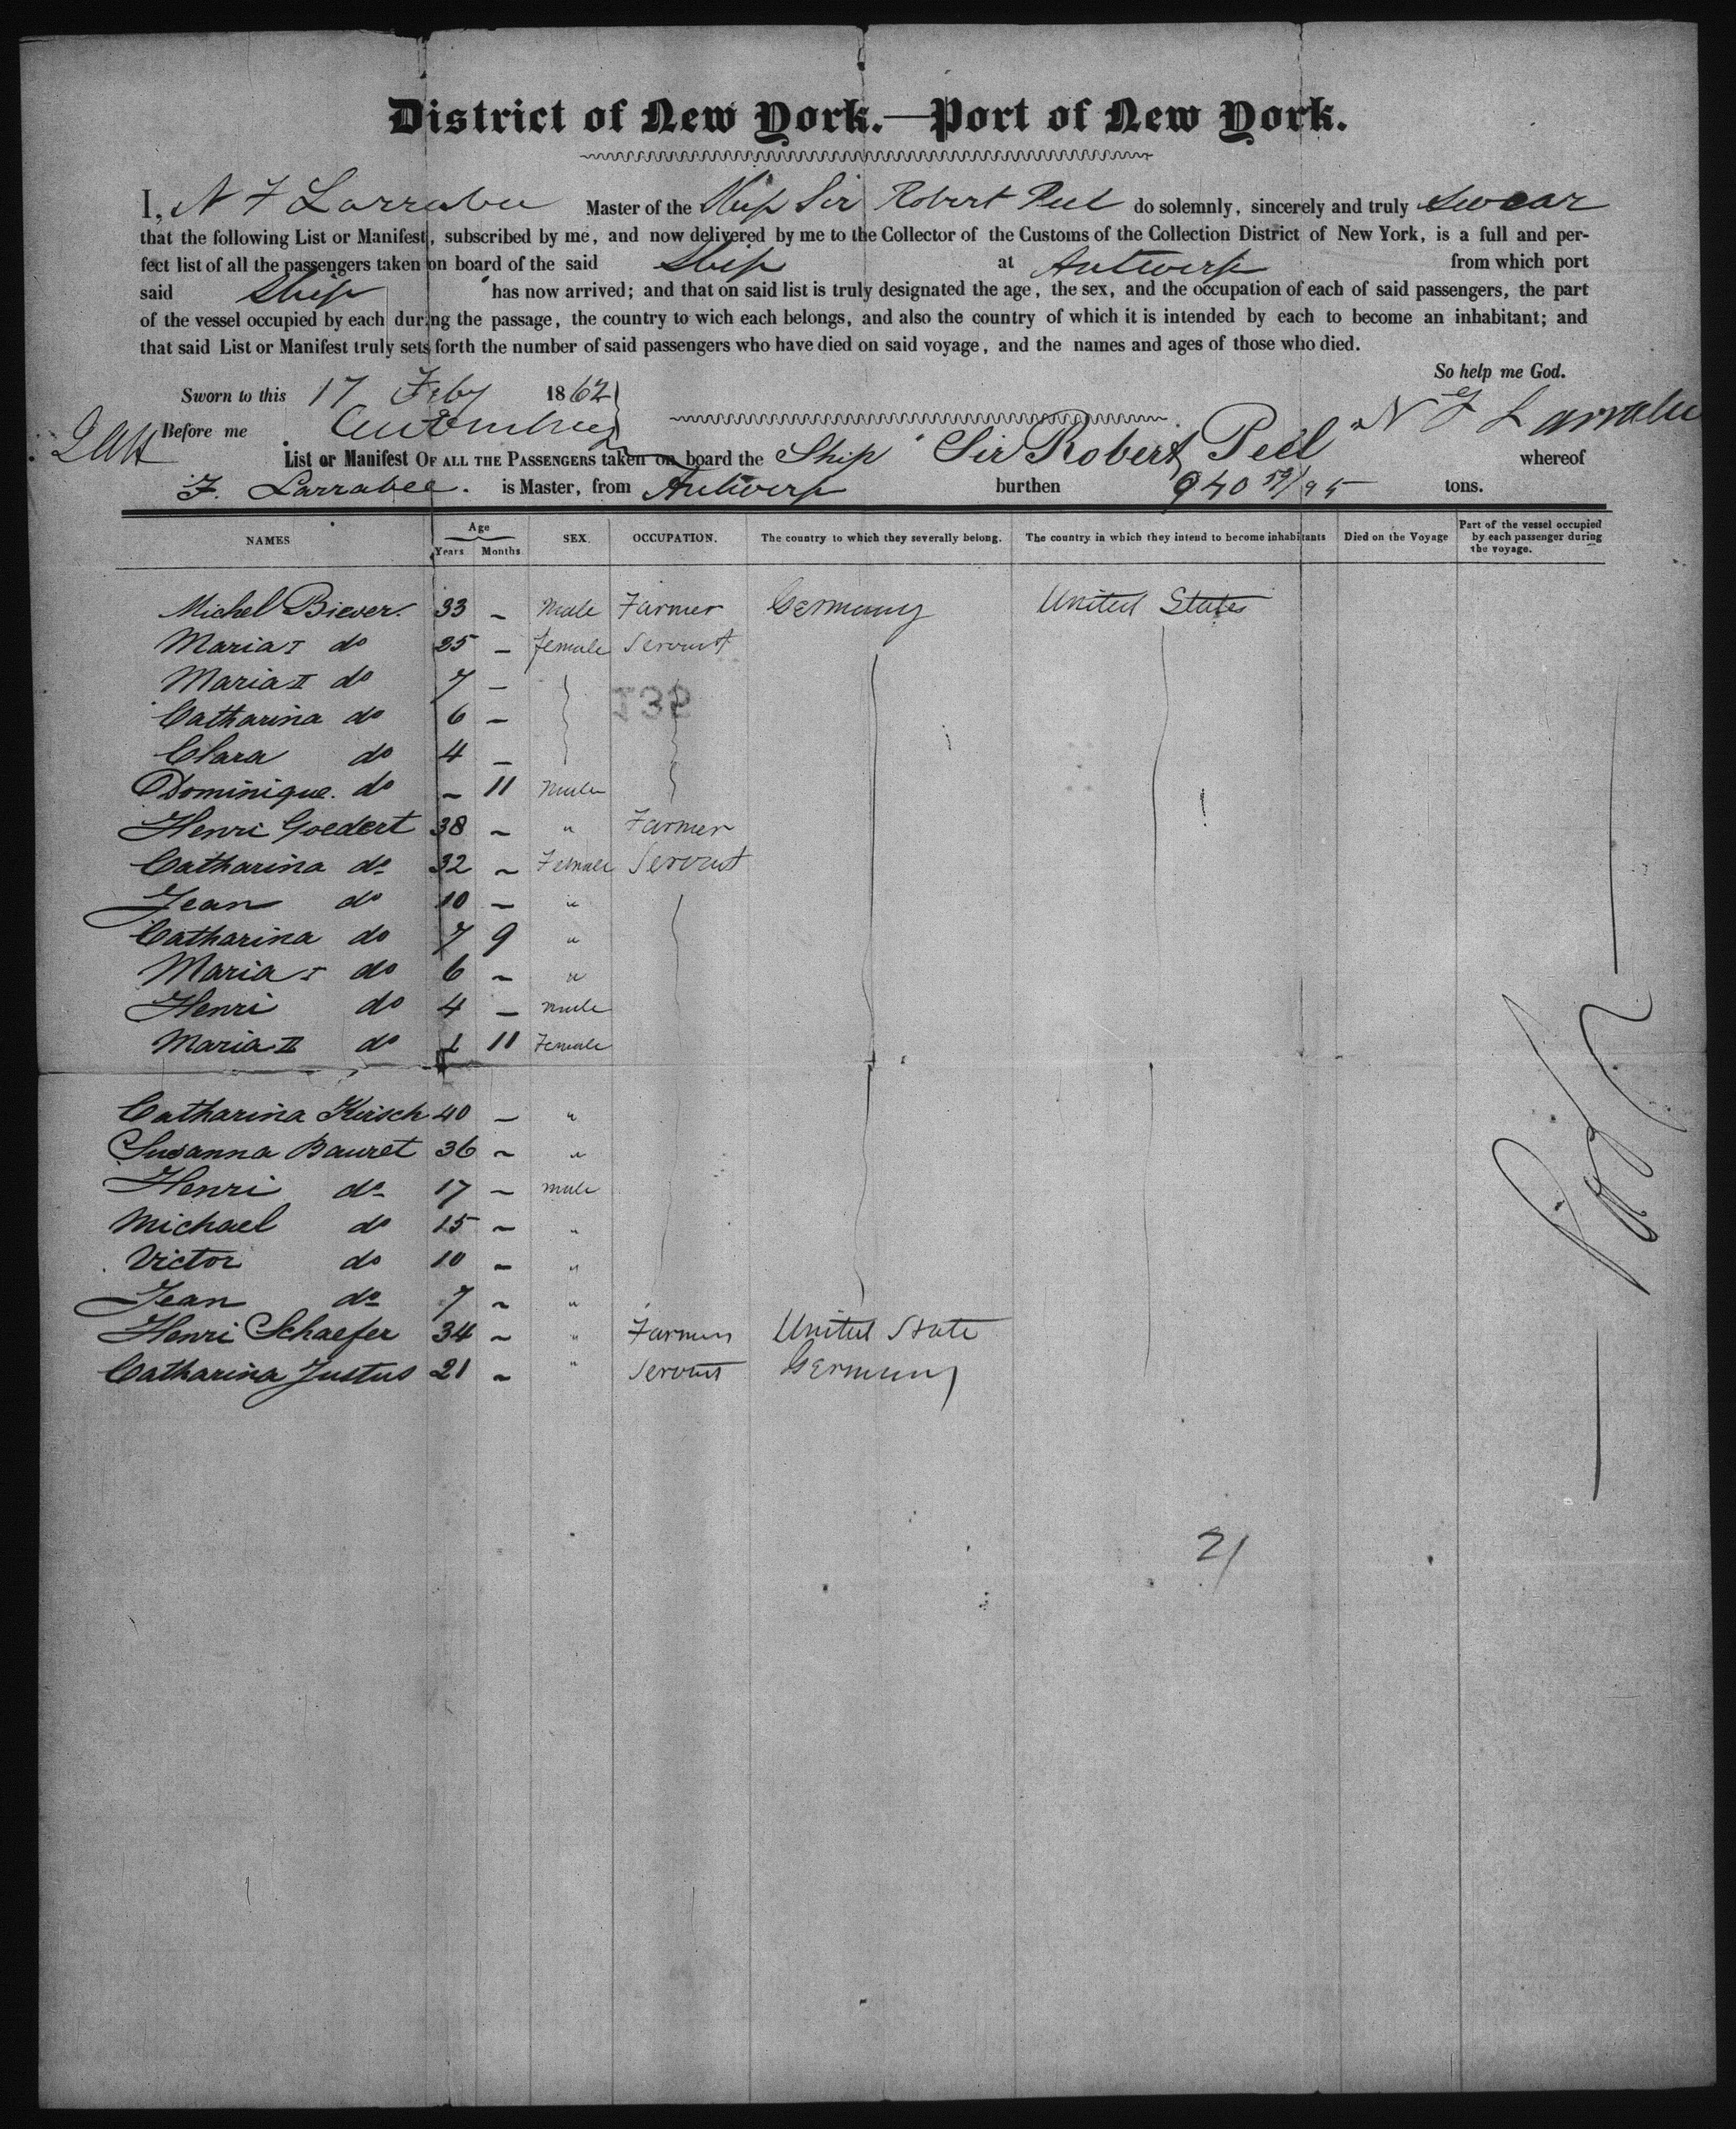 District of New York.—Port of New York.
I, N F Larrabee Master of the Ship Sir Robert Peel do solemnly, sincerely and truly swear
that the following List or Manifest, subscribed by me, and now delivered by me to the Collector of the Customs of the Collection District of New York, is a full and per-
fect list of all the passengers taken on board of the said Ship at Antwerp from which port
said Ship has now arrived; and that on said list is truly designated the age, the sex, and the occupation of each of said passengers, the part
of the vessel occupied by each during the passage, the country to wich each belongs, and also the country of which it is intended by each to become an inhabitant; and
that said List or Manifest truly sets forth the number of said passengers who have died on said voyage, and the names and ages of those who died.
So help me God.
Sworn to this 17 Feby 1862
Before me N F Larrabee
List or Manifest OF ALL THE PASSENGERS taken on board the Ship "Sir Robert Peel" whereof
F. Larrabee. is Master, from Antwerp burthen 940 59/95 tons.
NAMES Age Years Months SEX. OCCUPATION. The country to which they severally belong. The country in which they intend to become inhabitants Died on the Voyage Part of the vessel occupied by each passenger during the voyage.
Michel Biever. 33 – Male Farmer Germany United States
Maria I do 25 – female Servant
Maria II do 7 –
136
Catharina do 6 –
Clara do 4 –
Dominique. do – 11 Male
Henri Goedert 38 – " Farmer
Catharina do 32 – Female Servant
Jean do 10 – "
Catharina do 7 9 "
Maria I do 6 – "
Henri do 4 – male
Maria II do 1 11 Female
Catharina Kirsch 40 – "
Susanna Bauret 36 – "
Henri do 17 – male
Michael do 15 – "
Victor do 10 – "
Jean do 7 – "
Henri Schaefer 34 – " Farmer United State
Catharina Justus 21 – " Servant Germany
21